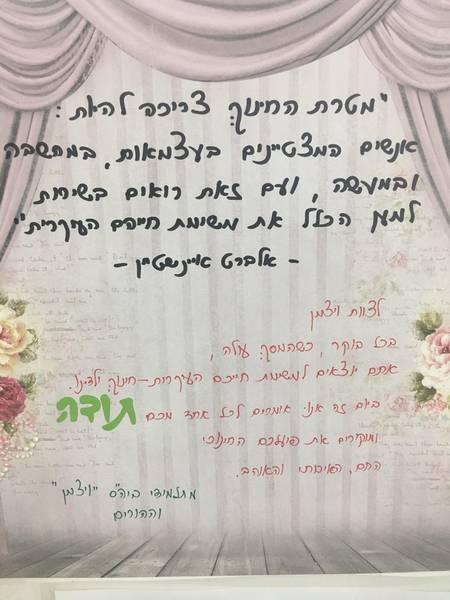 "מטרת החינוך צריכה להיות :
אנשים המצטיינים בעצמאות, במחשבה
ובמעשה, ועם זאת רואים בשירות
למען הכלל את משימת חייהם העיקרית"
- אלברט איינשטיין -
לצוות ויצמן
בכל בוקר, כשהמסך עולה,
אתם יוצאים למשימת חייכם העיקרית - חינוך ילדינו.
ביום זה אנו אומרים לכל אחד מכם תודה
ומוקירים את פועלכם החינוכי
החם, האיכותי והאוהב.
מתלמידי ביה"ס "ויצמן"
וההורים